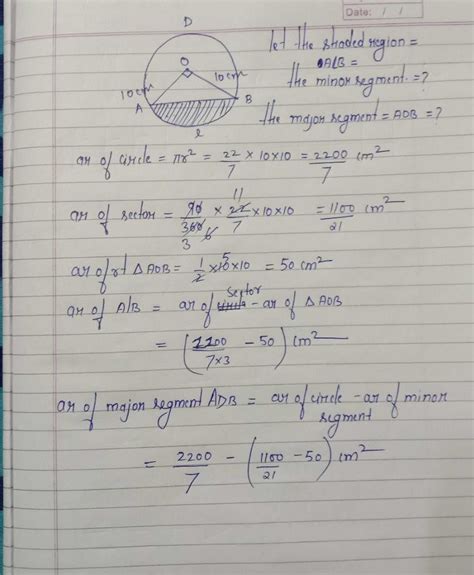 Date: / /
D
O
10cm 10cm
A B
l
let the shaded region =
AlB =
the minor segment = ?
the major segment = ADB = ?
ar of circle = πr² = 22/7 × 10 × 10 = 2200/7 cm²
ar of sector = 90/360 × 22/7 × 10 × 10 = 1100/21 cm²
3 6 11
ar of rt △ AOB = 1/2 × 10 × 10 = 50 cm²
5
ar of AlB = ar of sector - ar of △ AOB
= (1100/7×3 - 50) cm²
ar of major segment ADB = ar of circle - ar of minor
segment
= 2200/7 - (1100/21 - 50) cm²